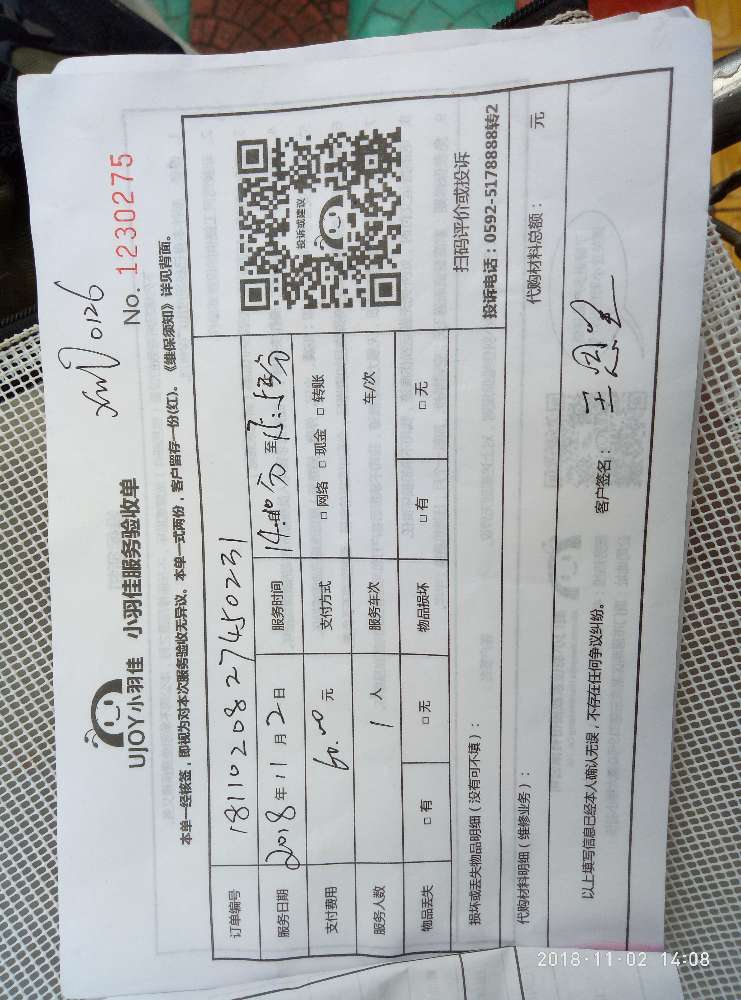 xm 0126
UJOY小羽佳 小羽佳服务验收单
No. 1230275
本单一经核签，即视为对本次服务验收无异议。本单一式两份，客户留存一份(红)。《维保须知》详见背面。
订单编号 1811020827450231
服务日期 2018年11月2日 服务时间 14:00分至15:分
支付费用 60.00元 支付方式 □网络 □现金 □转账
服务人数 1人 服务车次 车/次
物品丢失 □有 □无 物品损坏 □有 □无
投诉或建议
扫码评价或投诉
投诉电话：0592-5178888转2
损坏或丢失物品明细（没有可不填）：
代购材料明细（维修业务）： 代购材料总额： 元
以上填写信息已经本人确认无误，不存在任何争议纠纷。 客户签名：王
2018-11-02 14:08